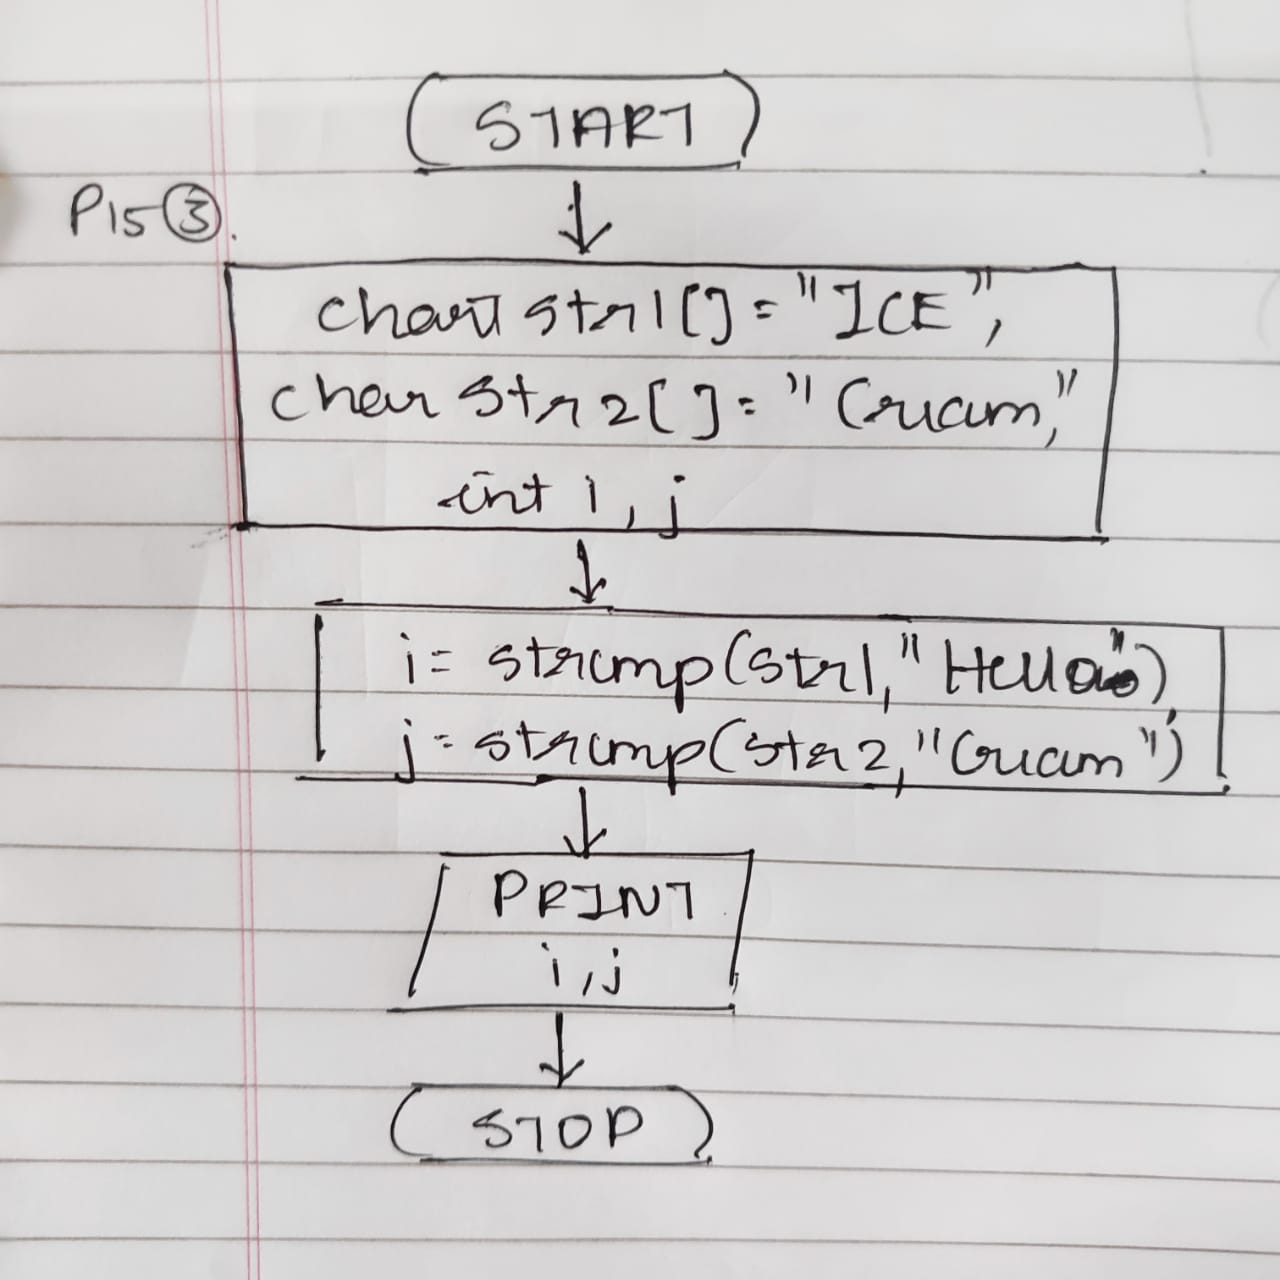 START
P15 ③.
char str1[] = "ICE",
char str2[] = "Cream,"
int i, j
i = strcmp(str1, "Hello"),
j = strcmp(str2, "Cream")
PRINT
i, j
STOP